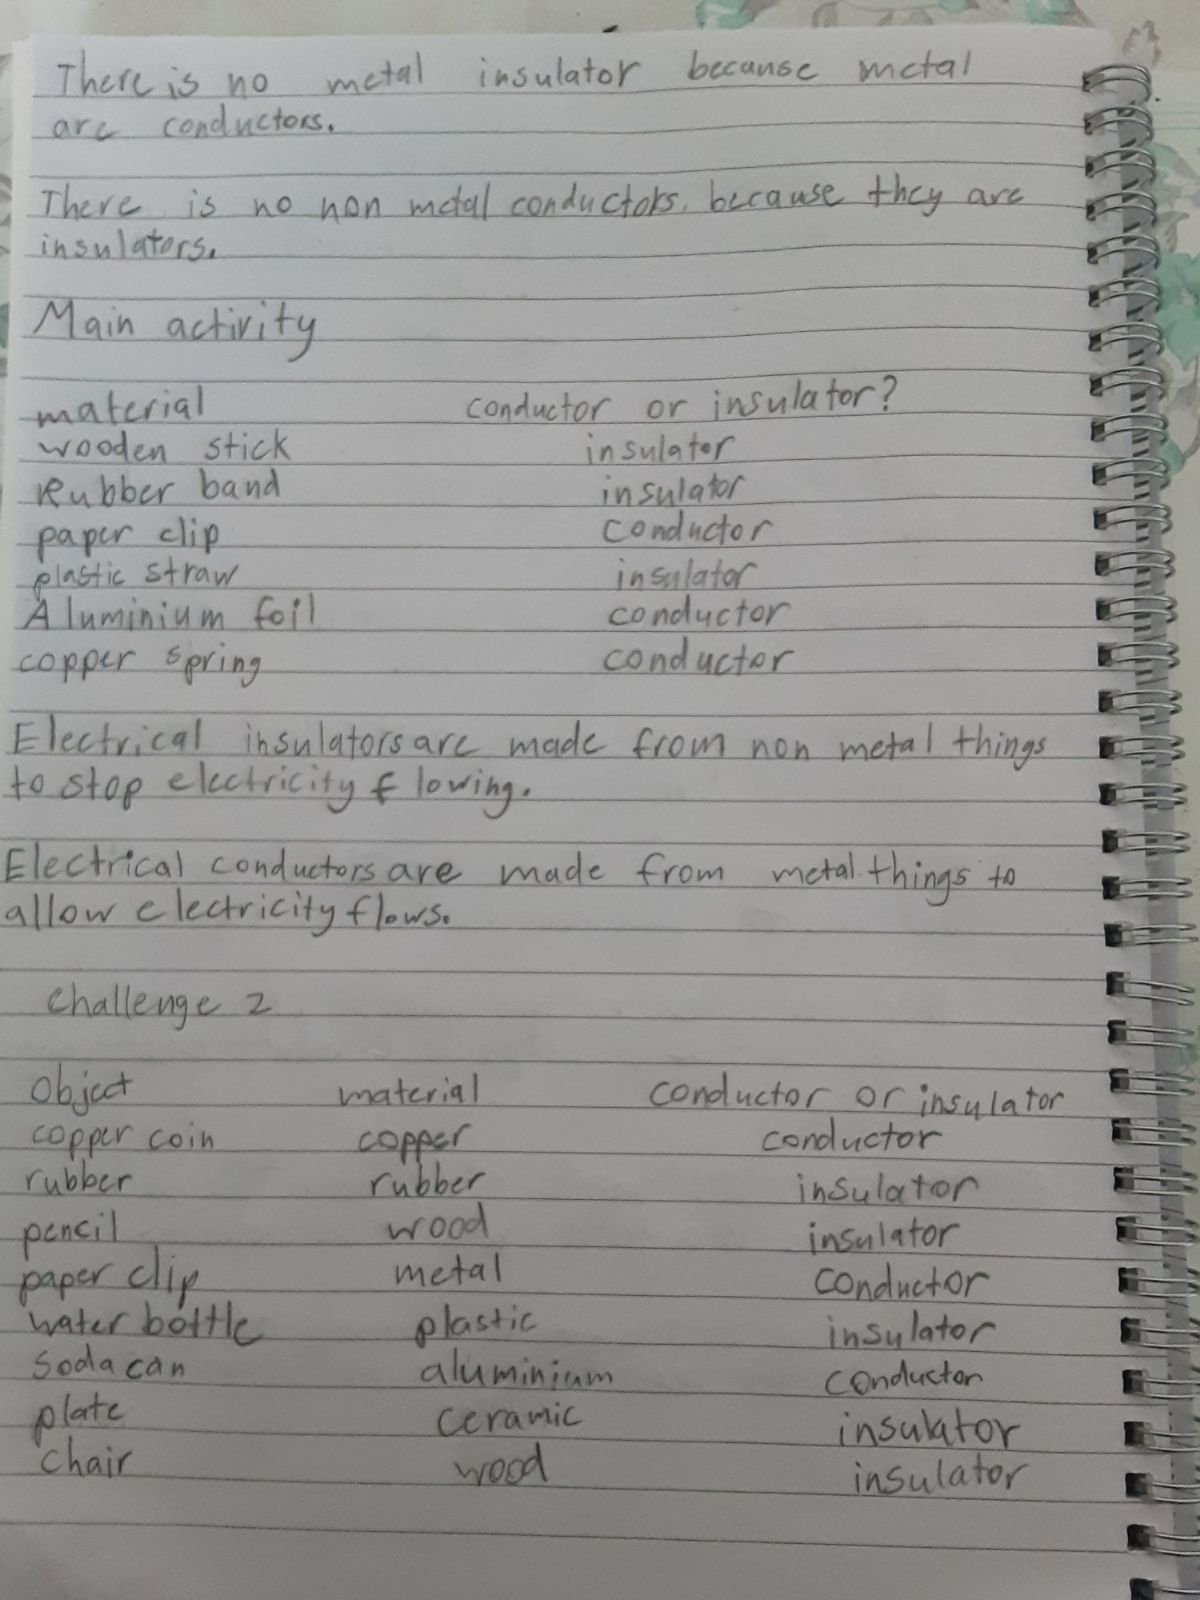 There is no metal insulator because metal
are conductors.
There is no non metal conductors. because they are
insulators.
Main activity
material conductor or insulator?
wooden stick insulator
Rubber band insulator
paper clip conductor
plastic straw insulator
Aluminium foil conductor
copper spring conductor
Electrical insulators are made from non metal things
to stop electricity flowing.
Electrical conductors are made from metal things to
allow electricity flows.
Challenge 2
Object material conductor or insulator
copper coin copper conductor
rubber rubber insulator
pencil wood insulator
paper clip metal conductor
water bottle plastic insulator
soda can aluminium conductor
plate ceramic insulator
chair wood insulator